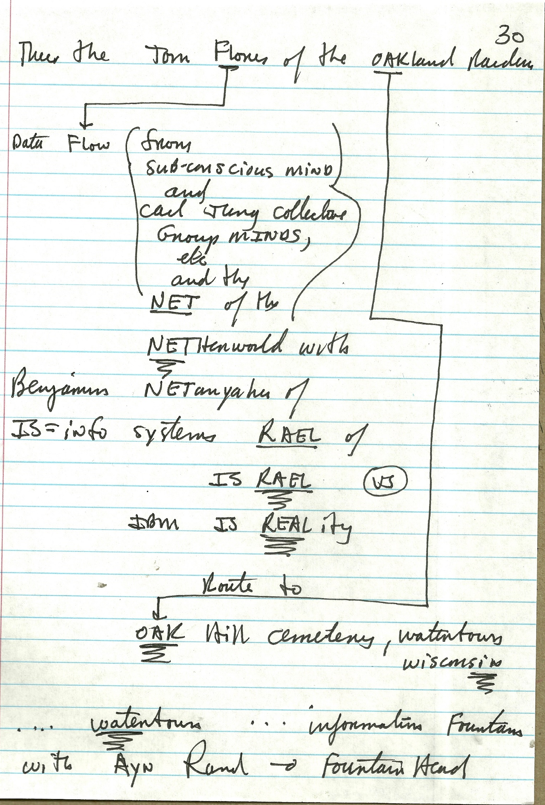 30
Thus the Tom Flores of the OAKland Raiders
Data Flow (from
sub-conscious mind
and
Carl Jung collective
Group MINDS,
etc
and the
NET of the
NETHerworld with
Benjamin NETanyahu of
IS=info systems RAEL of
IS RAEL VS
IBM IS REALity
Route to
OAK Hill cemetery, watertown
wisconsin
.... watertown ... information Fountain
with Ayn Rand → Fountain Head